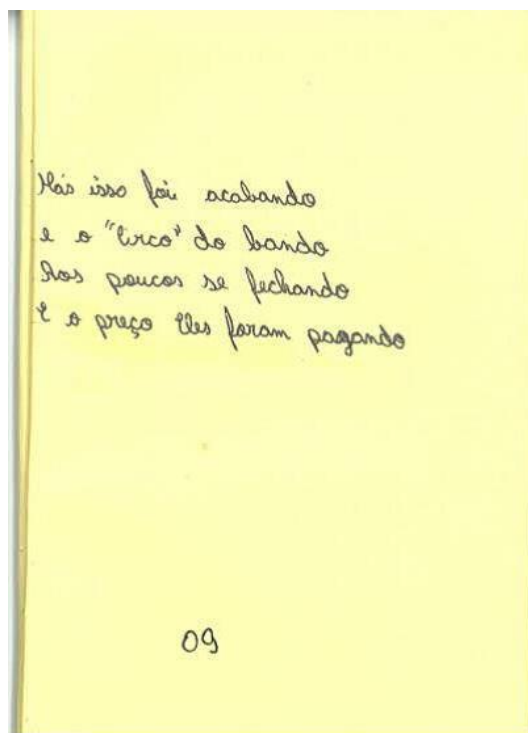 Más isso foi acabando
e o "Circo" do bando
Aos poucos se fechando
E o preço Eles foram pagando
09